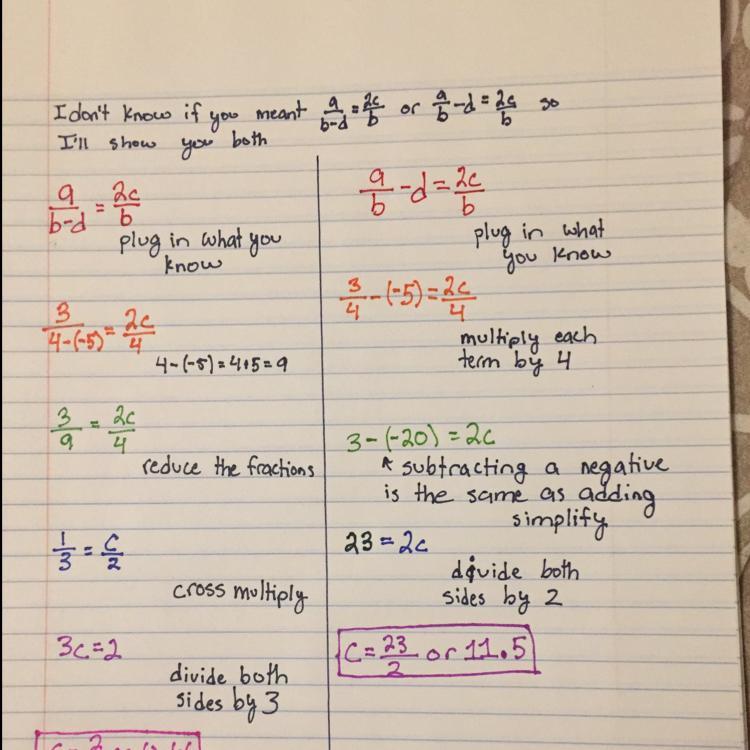 I don't know if you meant a/(b-d) = 2c/b or a/b - d = 2c/b so
I'll show you both
a/(b-d) = 2c/b
plug in what you
know
3/(4-(-5)) = 2c/4
4-(-5)=4+5=9
3/9 = 2c/4
reduce the fractions
1/3 = c/2
cross multiply
3c=2
divide both
sides by 3
a/b - d = 2c/b
plug in what
you know
3/4 - (-5) = 2c/4
multiply each
term by 4
3-(-20) = 2c
subtracting a negative
is the same as adding
simplify
23 = 2c
divide both
sides by 2
c = 23/2 or 11.5